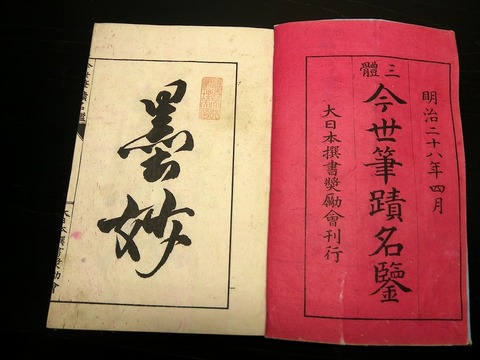 明治二十八年四月
三體
今世筆蹟名鑒
大日本撰書奬勵會刊行
墨妙